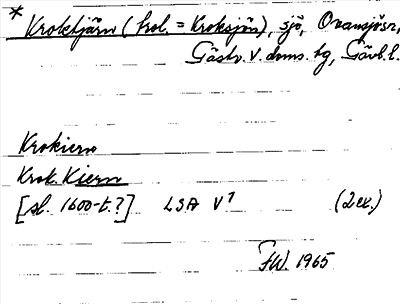 * Kroktjärn (trol. = Kroksjön), sjö, Ovansjösn,
Gästr. v. doms. tg, Gävb. l.
Krokiern
Krok Kiern
[sl. 1600-t.?] LSA V1 (2 ex.)
F.W. 1965